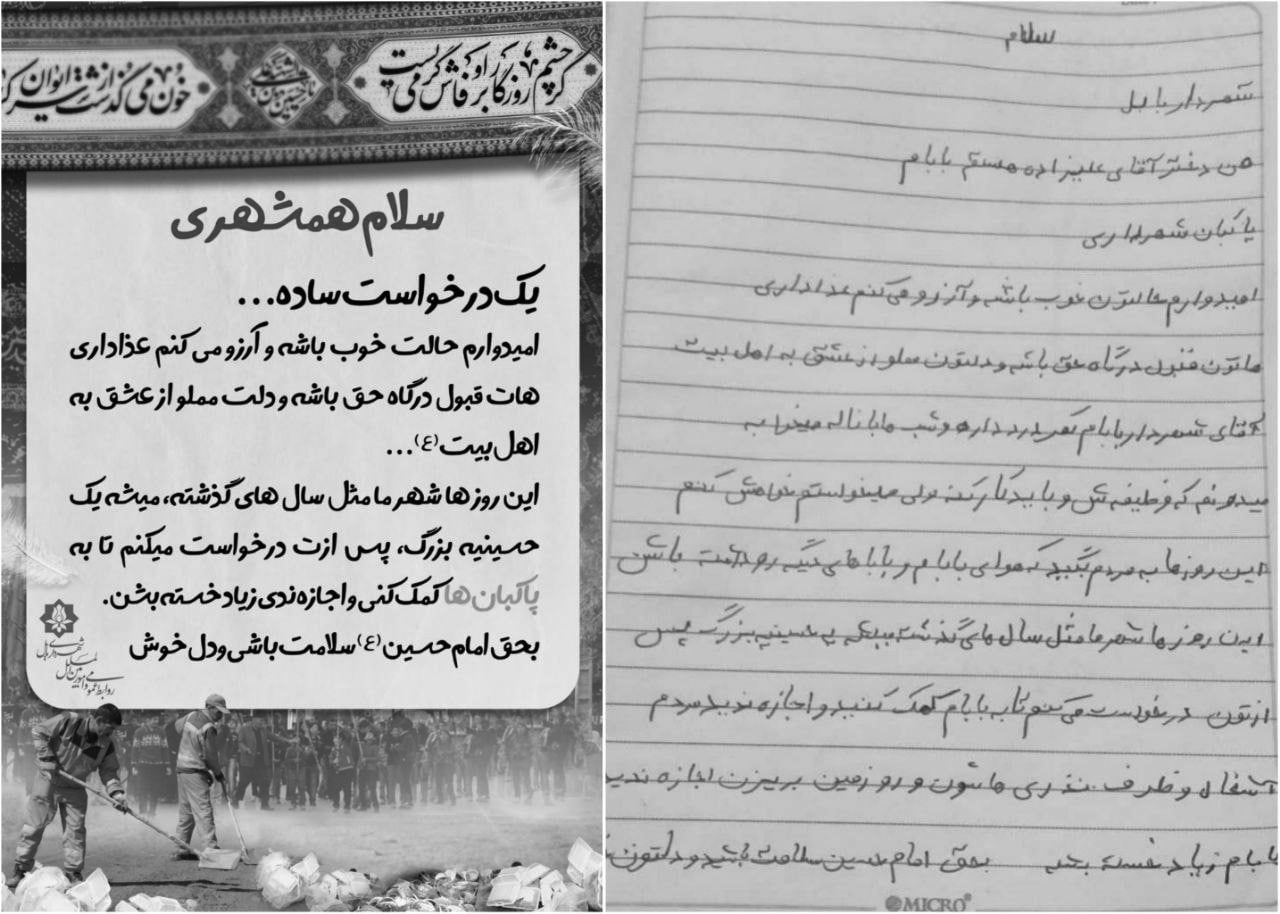 گر چشم روزگار بر او فاش می گریست
خون می گذشت از سر ایوان
سلام همشهری
یک درخواست ساده...
امیدوارم حالت خوب باشه و آرزو می کنم عذاداری
هات قبول درگاه حق باشه و دلت مملو از عشق به
اهل بیت (ع)...
این روزها شهر ما مثل سال های گذشته، میشه یک
حسینیه بزرگ، پس ازت درخواست میکنم تا به
پاکبان ها کمک کنی و اجازه ندی زیاد خسته بشن.
بحق امام حسین (ع) سلامت باشی و دل خوش
سلام
شهردار بابل
من دختر آقای علیزاده هستم بابام
پاکبان شهرداری
امیدوارم حالتون خوب باشه و آرزو می کنم عذاداری
هاتون قبول درگاه حق باشه و دلتون مملو از عشق به اهل بیت
آقای شهردار بابام کمر درد داره و شب ها با ناله میخوابه
میدونم که وظیفه ش و باید کار کنه ولی میخواستم خواهش کنم
این روزها به مردم بگید که هوای بابام و باباهای دیگه رو داشته باشن
این روزها شهر ما مثل سال های گذشته میشه یه حسینیه بزرگ پس
ازتون درخواست می کنم تا به بابام کمک کنید و اجازه ندید مردم
آشغال و ظرف نذری هاشون و رو زمین بریزن اجازه ندید
بابام زیاد خسته بشه بحق امام حسین سلامت باشید و دلتون
MICRO